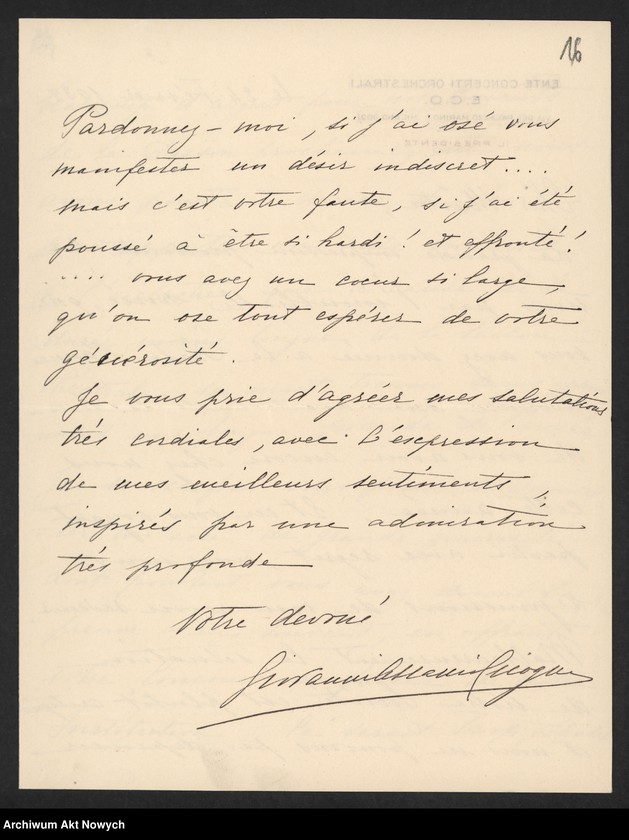 16
ENTE CONCERTI ORCHESTRALI
E.C.O.
IL PRESIDENTE
Pardonnez-moi, si j'ai osé vous
manifester un désir indiscret....
mais c'est votre faute, si j'ai été
poussé à être si hardi! et affronté!
.... vous avez un coeur si large,
qu'on ose tout espérer de votre
générosité.
Je vous prie d'agréer mes salutations
très cordiales, avec l'expression
de mes meilleurs sentiments,
inspirés par une admiration
très profonde
Votre devoué
Giovanni
Archiwum Akt Nowych